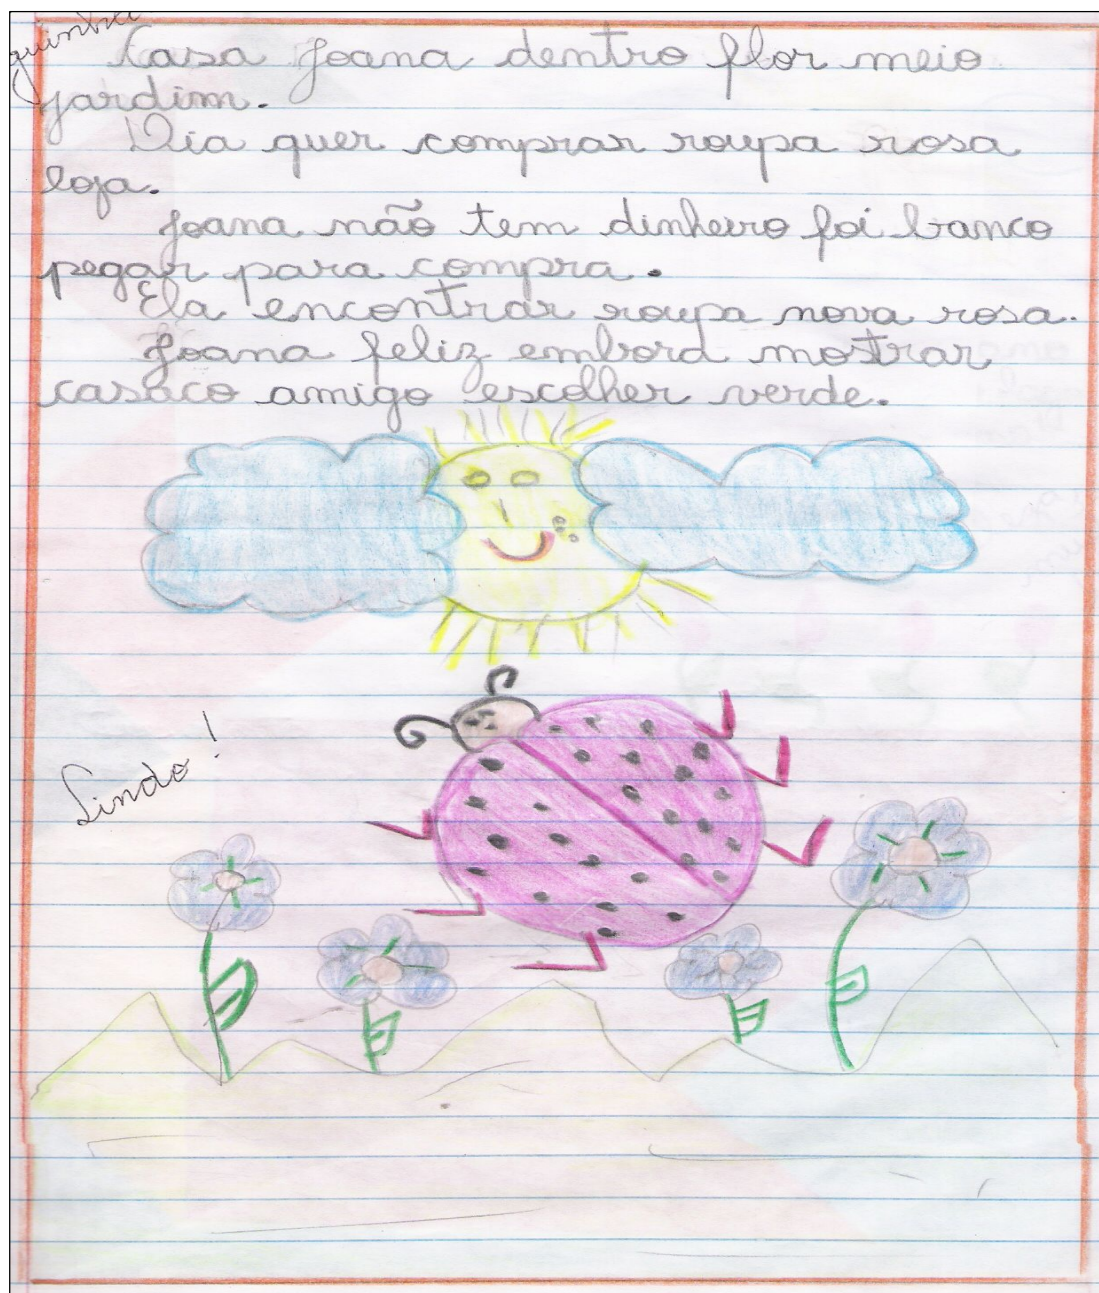 Casa Joana dentro flor meio
jardim.
Dia quer comprar roupa rosa
loja.
Joana não tem dinheiro foi banco
pegar para compra.
Ela encontrar roupa nova rosa.
Joana feliz embord mostrar
casaco amigo escolher verde.
Lindo!